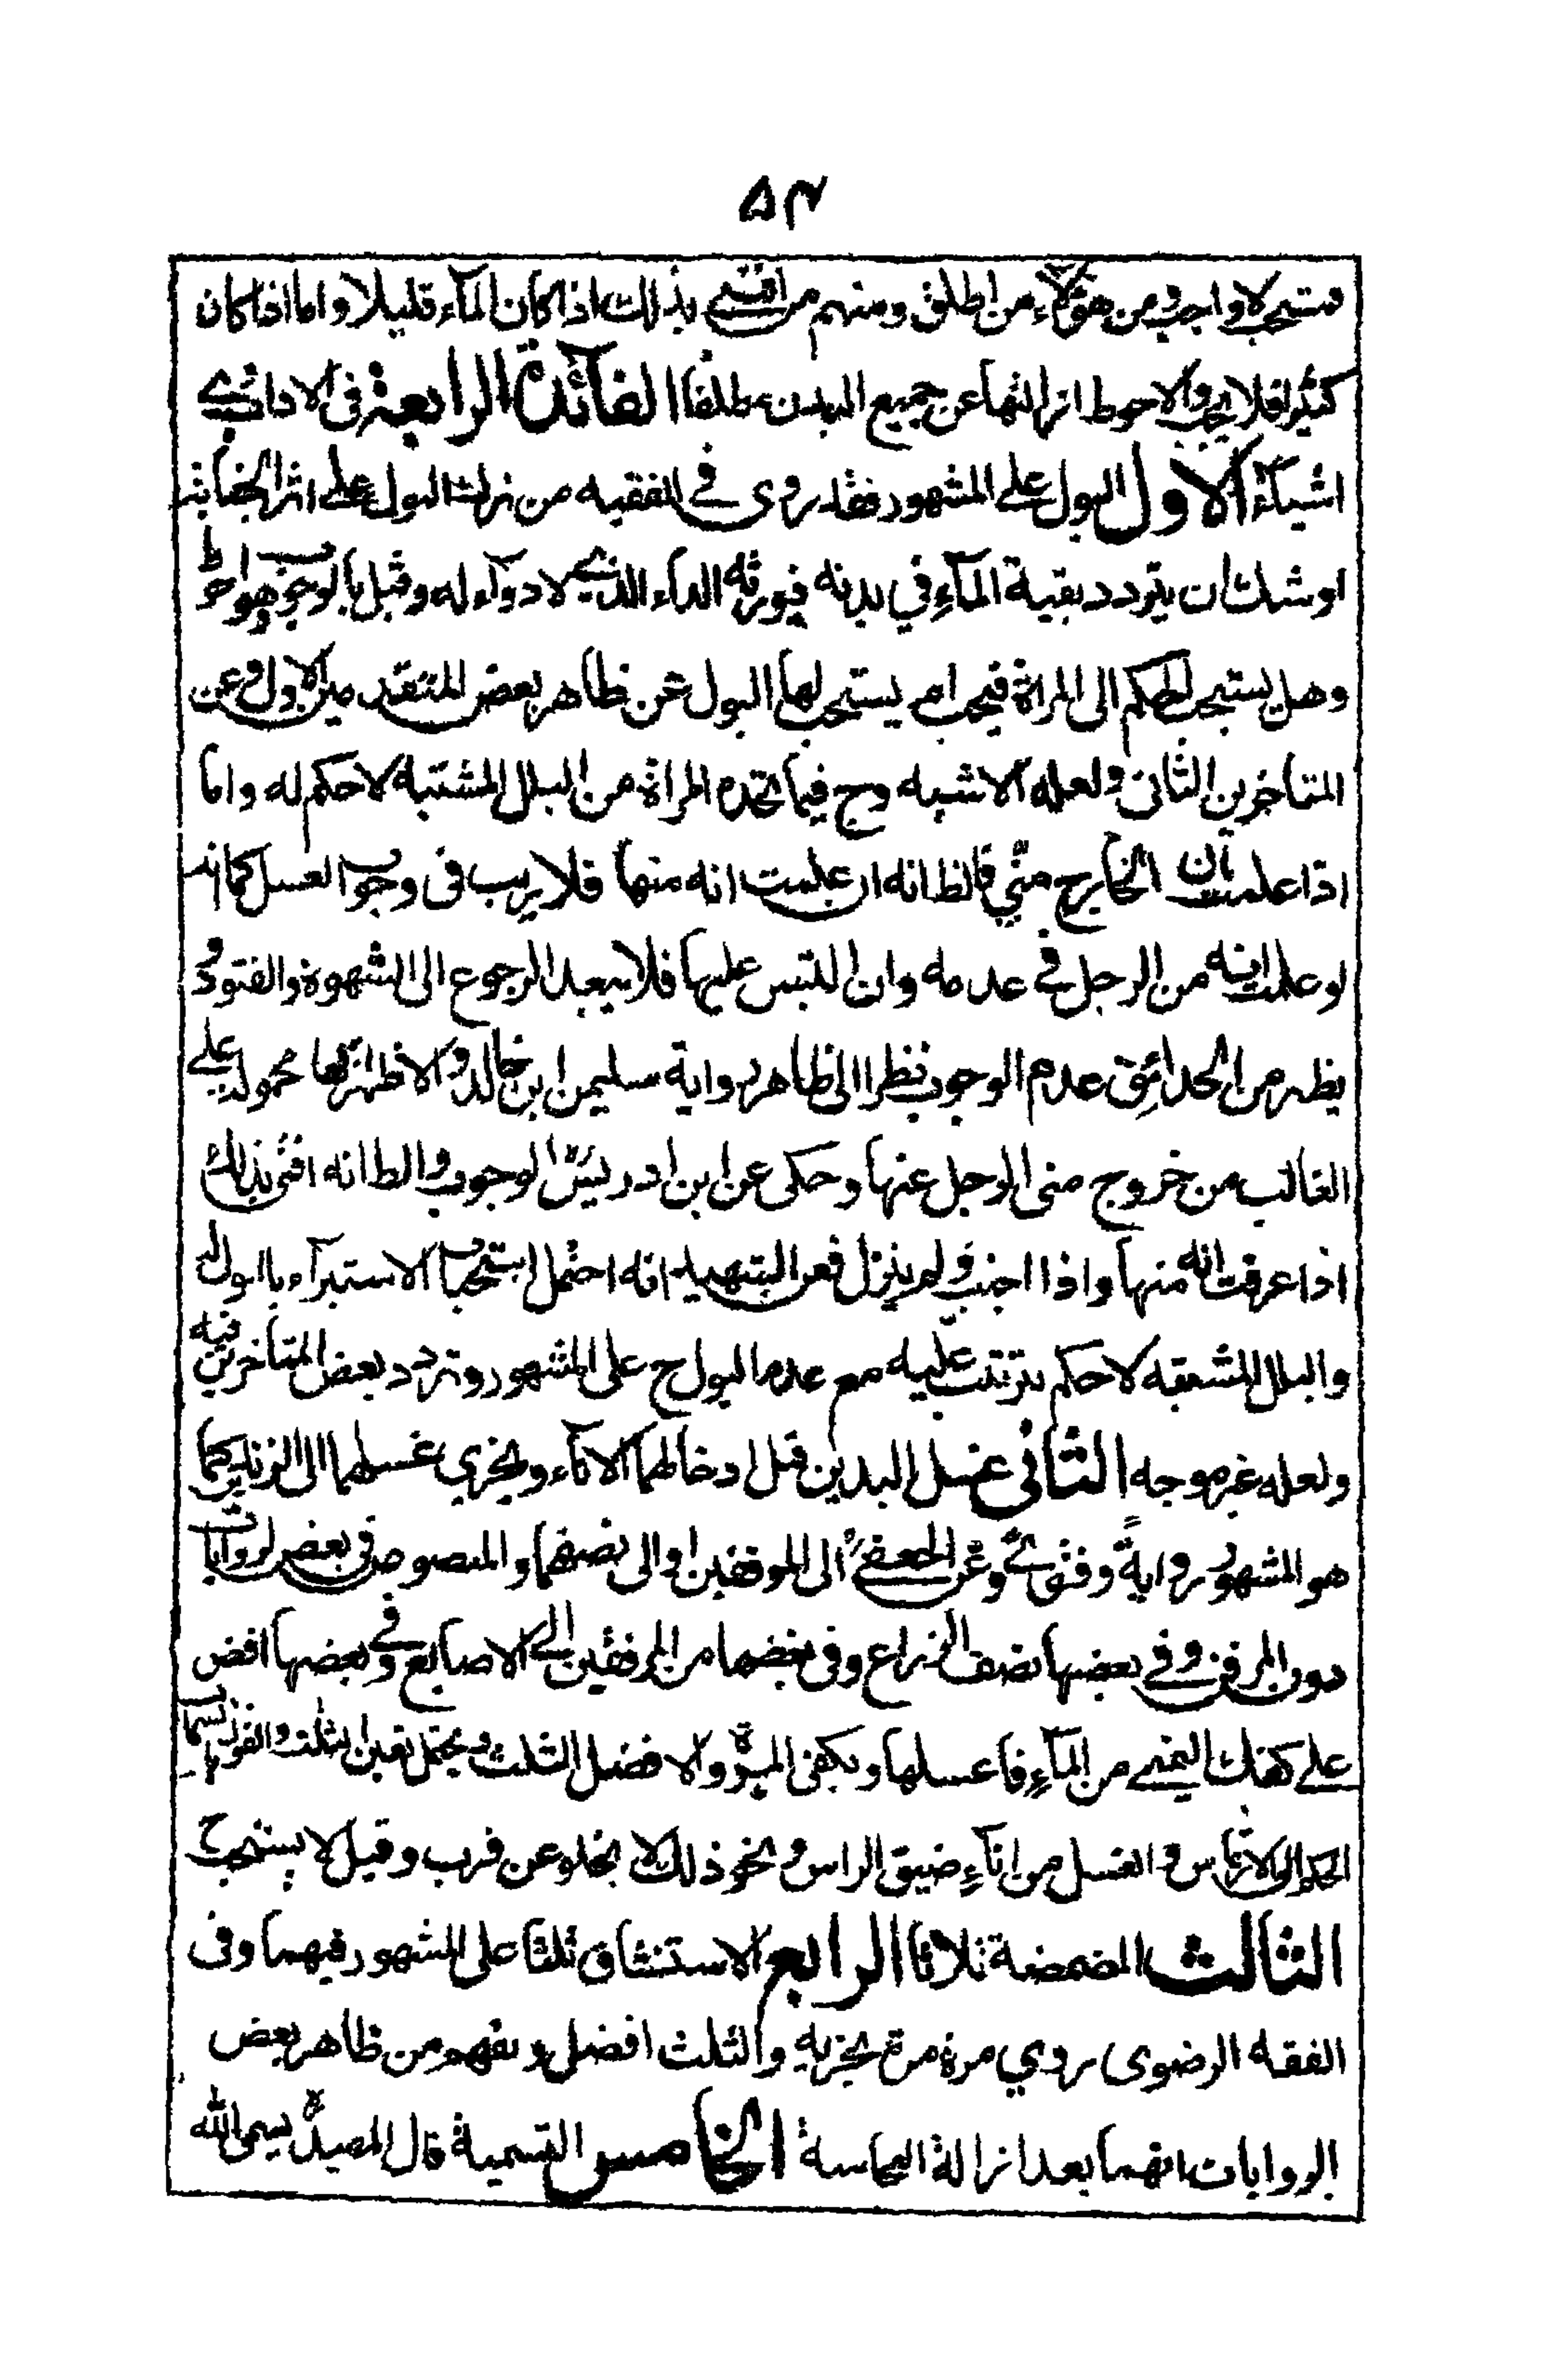 ۵۳
مستحب لا واجب ومن هؤلاء من اطلق ومنهم من افتى بذلك اذا كان المآء قليلا واما اذا كان
كثيرا فلا يجب والاحوط ازالتها عن جميع البدن مطلقا الفائدة الرابعة فى الاداب وهى
اشيآء الاول البول على المشهور فقد روى في الفقيه من ترك البول على اثر الجنابة
اوشك ان يتردد بقية المآء في بدنه فيورثه الدآء الذى لا دوآء له وقيل بالوجوب وهو احوط
وهل يستحب الحكم الى المراة فيجب ام يستحب لها البول عن ظاهر بعض المتقدمين الاول وعن
المتاخرين الثانى ولعله الاشبه وح فيما تجده المراة من البلل المشتبه لا حكم له واما
اذا علمت بان الخارج منّي فالظ انه ان علمت انه منها فلا ريب فى وجوب الغسل كما انه
لو علمت انه من الرجل في عدمه وان التبس عليها فلا يبعد الرجوع الى الشهوة والفتور و
يظهر من الحدائق عدم الوجوب نظرا الى ظاهر رواية سليمن ابن خالد والاظهر انها محمولة على
الغالب من خروج منى الرجل عنها وحكى عن ابن ادريس الوجوب والظ انه افتى بذلك
اذا عرفت انه منها واذا اجنب ولم ينزل فعن التمهيد انه احتمل استحباب الاستبرآء بالبول له
والبلل المشتبه لا حكم يترتب عليه مع عدم البول ح على المشهور وتردد بعض المتاخرين فيه
ولعله غير موجه الثانى غسل اليدين قبل ادخالهما الانآء ويجزي غسلهما الى الزندين كما
هو المشهور رواية وفتوى وعن الجعفى الى المرفقين او الى نصفهما والمنصوص فى بعض الروايات
دون المرفق وفي بعضها نصف الذراع وفى بعضها من المرفقين الى الاصابع وفي بعضها افض
على كفك اليمنى من المآء فاغسلها ويكفى المرة والافضل الثلث ويحتمل تعين الثلث والقول بانسحاب
الحكم الى الارتماس والغسل من انآء ضيق الراس ونحو ذلك لا يخلو عن قرب وقيل لا يستحب ح
الثالث المضمضة ثلاثا الرابع الاستنشاق ثلثا على المشهور فيهما وفى
الفقه الرضوى روي مرة مرة يجزيه والثلث افضل ويفهم من ظاهر بعض
الروايات انهما بعد ازالة النجاسة الخامس التسمية قال المفيد يسمى الله